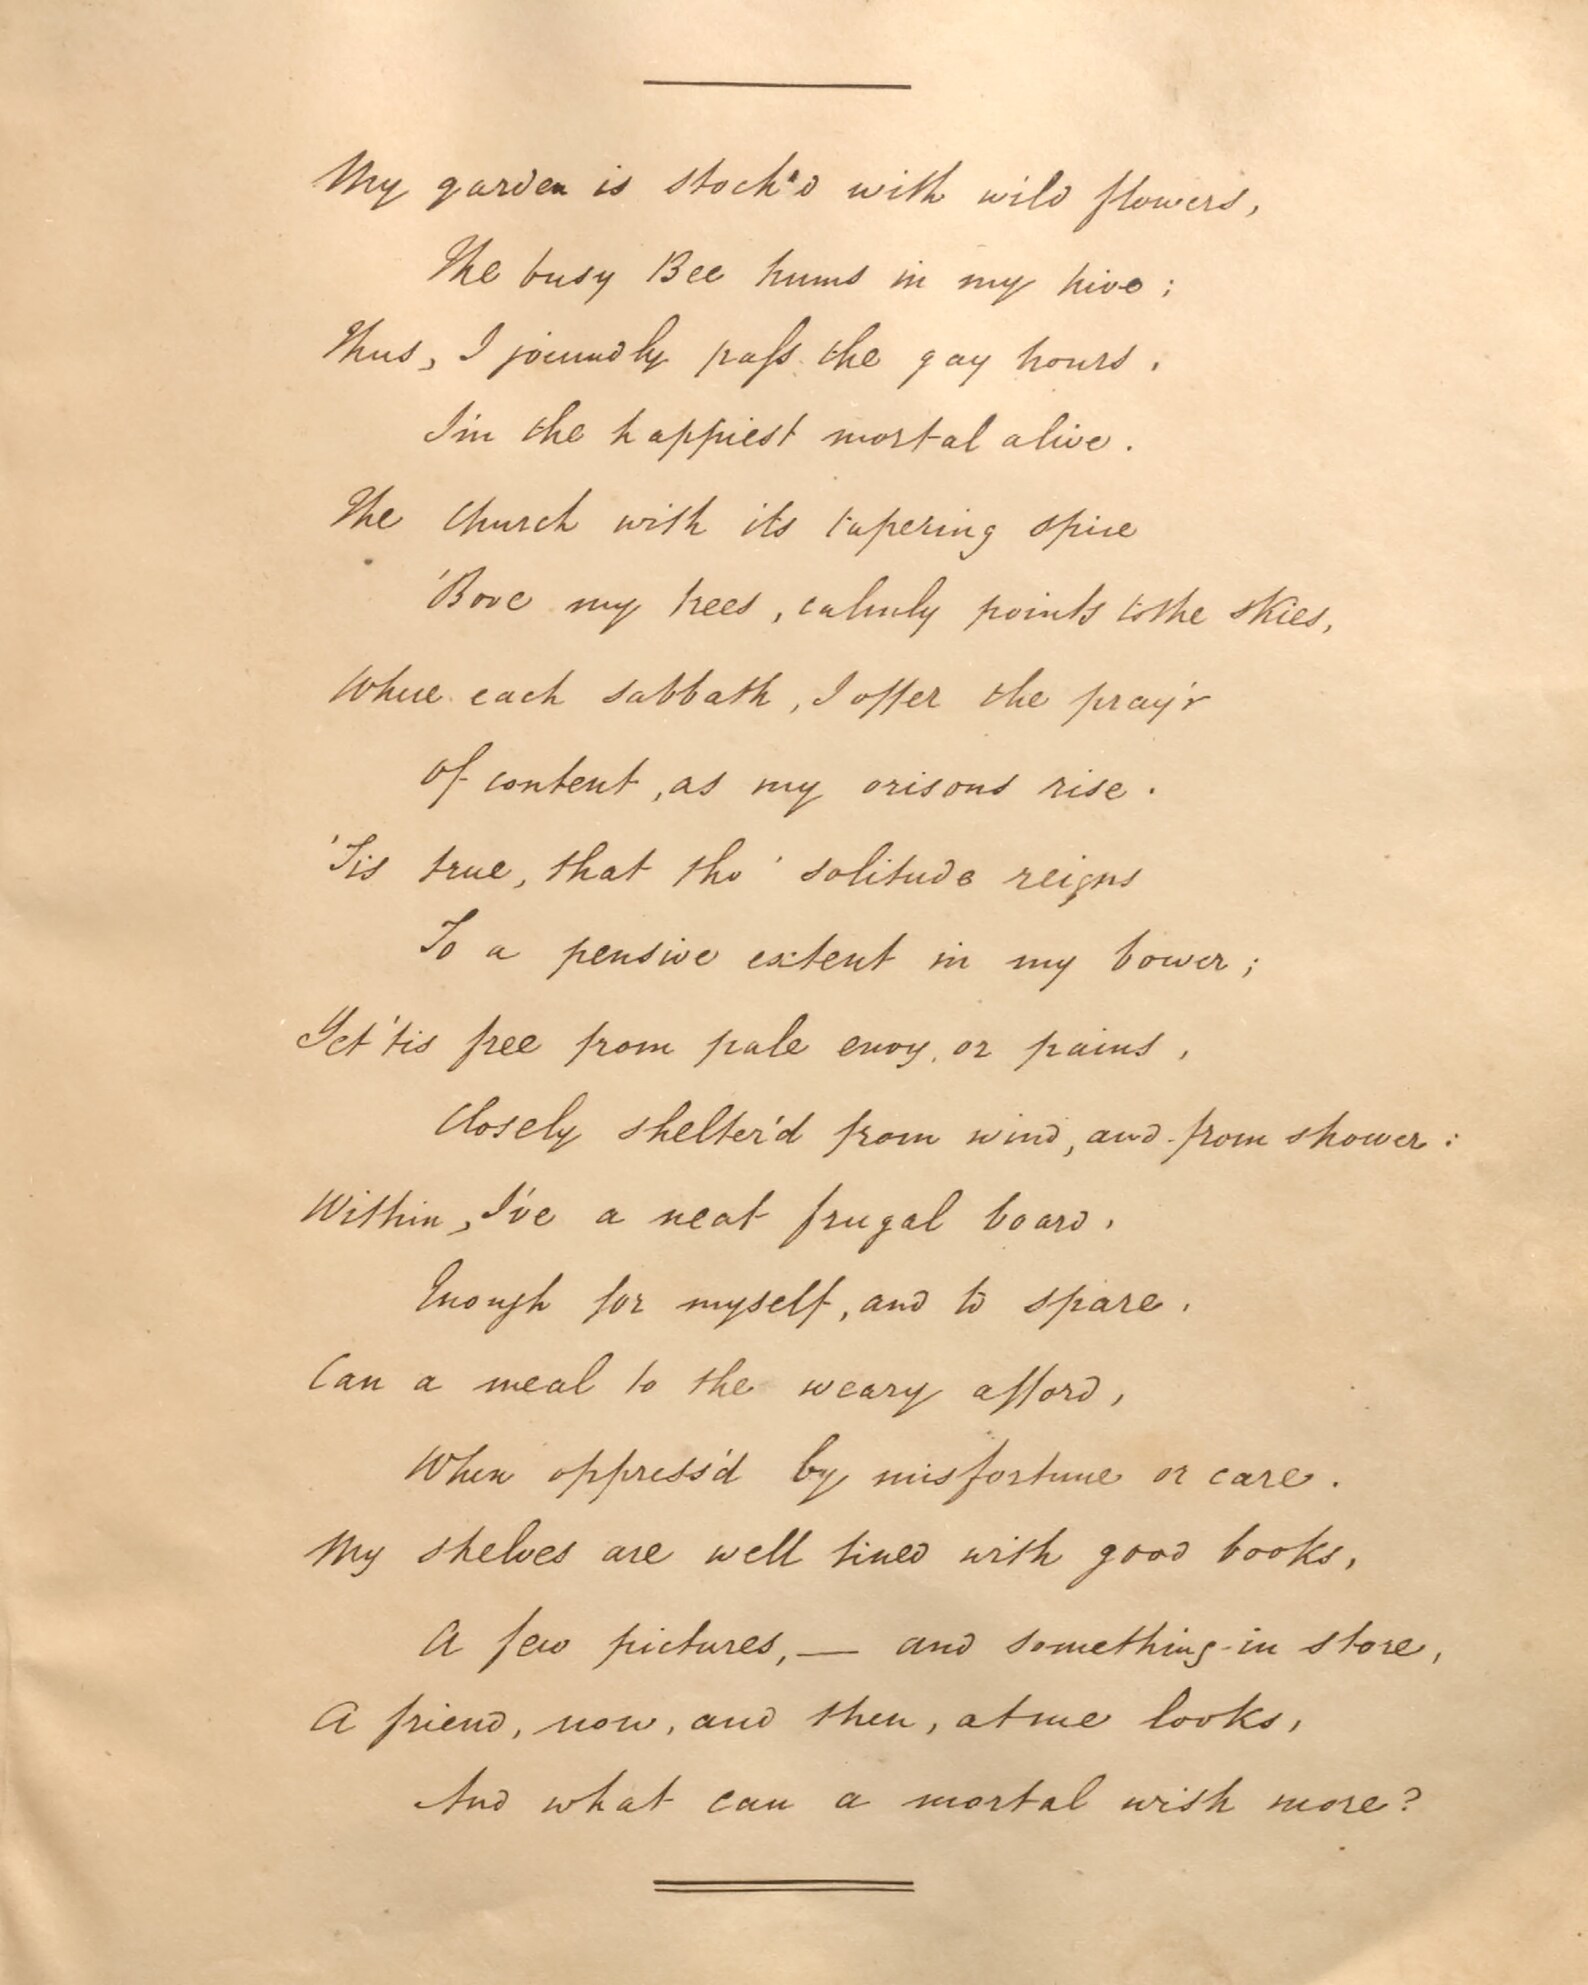 My garden is stock'd with wild flowers,
The busy Bee hums in my hive;
Thus, I jocundly paſs the gay hours,
I'm the happiest mortal alive.
The Church with its tapering spire
'Bove my trees, calmly points to the skies,
Where each sabbath, I offer the pray'r
Of content, as my orisons rise.
'Tis true, that tho' solitude reigns
To a pensive extent in my bower;
Yet 'tis free from pale envy, or pains,
Closely shelter'd from wind, and from shower:
Within, I've a neat frugal board,
Enough for myself, and to spare,
Can a meal to the weary afford,
When oppress'd by misfortune or care.
My shelves are well lined with good books,
A few pictures, — and something in store,
A friend, now, and then, at me looks,
And what can a mortal wish more?